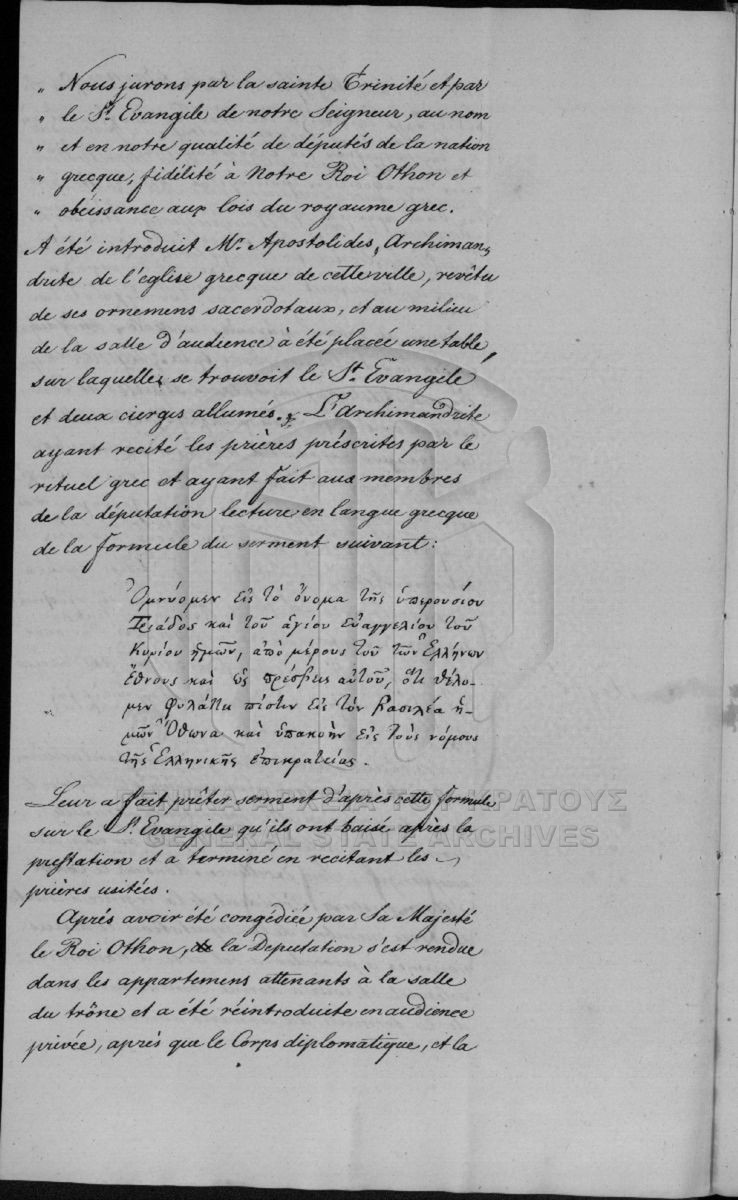 „ Nous jurons par la sainte Trinité et par
„ le St. Evangile de notre Seigneur, au nom
„ et en notre qualité de députés de la nation
„ grecque, fidélité à Notre Roi Othon et
„ obéissance aux lois du royaume grec.
A été introduit Mr. Apostolides, Archiman„
drite de l'église grecque de cette ville, revêtu
de ses ornemens sacerdotaux, et au milieu
de la salle d'audience à été placée une table,
sur laquelle se trouvoit le St. Evangile
et deux cierges allumés. L'Archimandrite
ayant recité les prières préscrites par le
rituel grec et ayant fait aux membres
de la députation lecture en langue grecque
de la formule du serment suivant:
Ὀμνύομεν εἰς τὸ ὄνομα τῆς ὑπερουσίου
Τριάδος καὶ τοῦ ἁγίου εὐαγγελίου τοῦ
Κυρίου ἡμῶν, ἀπὸ μέρους τοῦ τῶν Ἑλλήνων
ἔθνους καὶ ὡς πρέσβεις αὐτοῦ, ὅτι θέλο-
μεν φυλάττει πίστιν εἰς τὸν βασιλέα ἡ-
μῶν Ὄθωνα καὶ ὑπακοὴν εἰς τοὺς νόμους
τῆς Ἑλληνικῆς ἐπικρατείας.
Leur a fait prêter serment d'après cette formule
sur le St. Evangile qu'ils ont baisé après la
prestation et a terminé en recitant les
prières usitées.
Après avoir été congédiée par Sa Majesté
le Roi Othon, la Deputation s'est rendue
dans les appartemens attenants à la salle
du trône et a été réintroduite en audience
privée, après que le Corps diplomatique, et la
ΓΕΝΙΚΑ ΑΡΧΕΙΑ ΤΟΥ ΚΡΑΤΟΥΣ
GENERAL STATE ARCHIVES